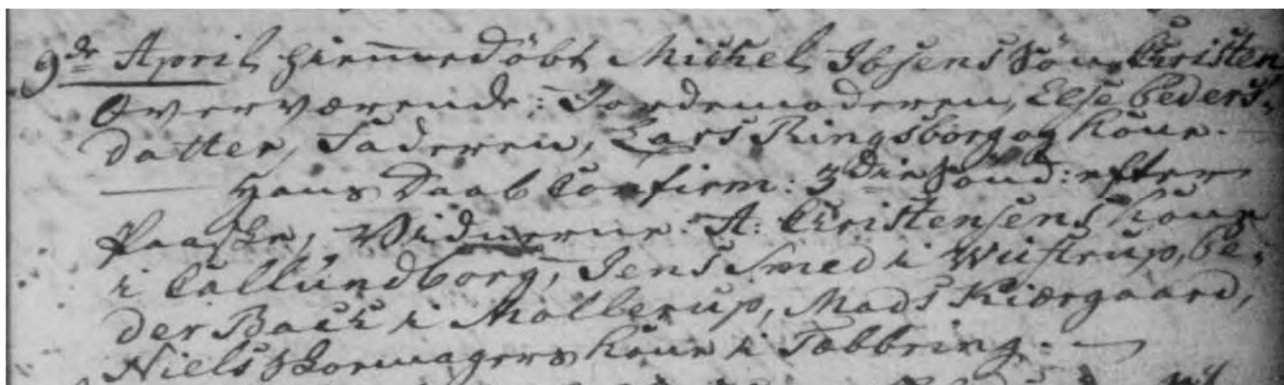 9de April, hiemmedøbt Michel Ibsens Søn, Christen
Overværende: Jordemoderen, Else Peders-
datter, Faderen, Lars Ringsborg og Kone. —
— Hans Daab Confirm: 3die Sønd: efter
Paaske, Vidnerne: A: Christensens Kone
i Callundborg, Jens Smed i Wiistrup, Pe-
der Bach i Mollerup, Mads Kiærgaard,
Niels Skomagers Kone i Tøbbring. —